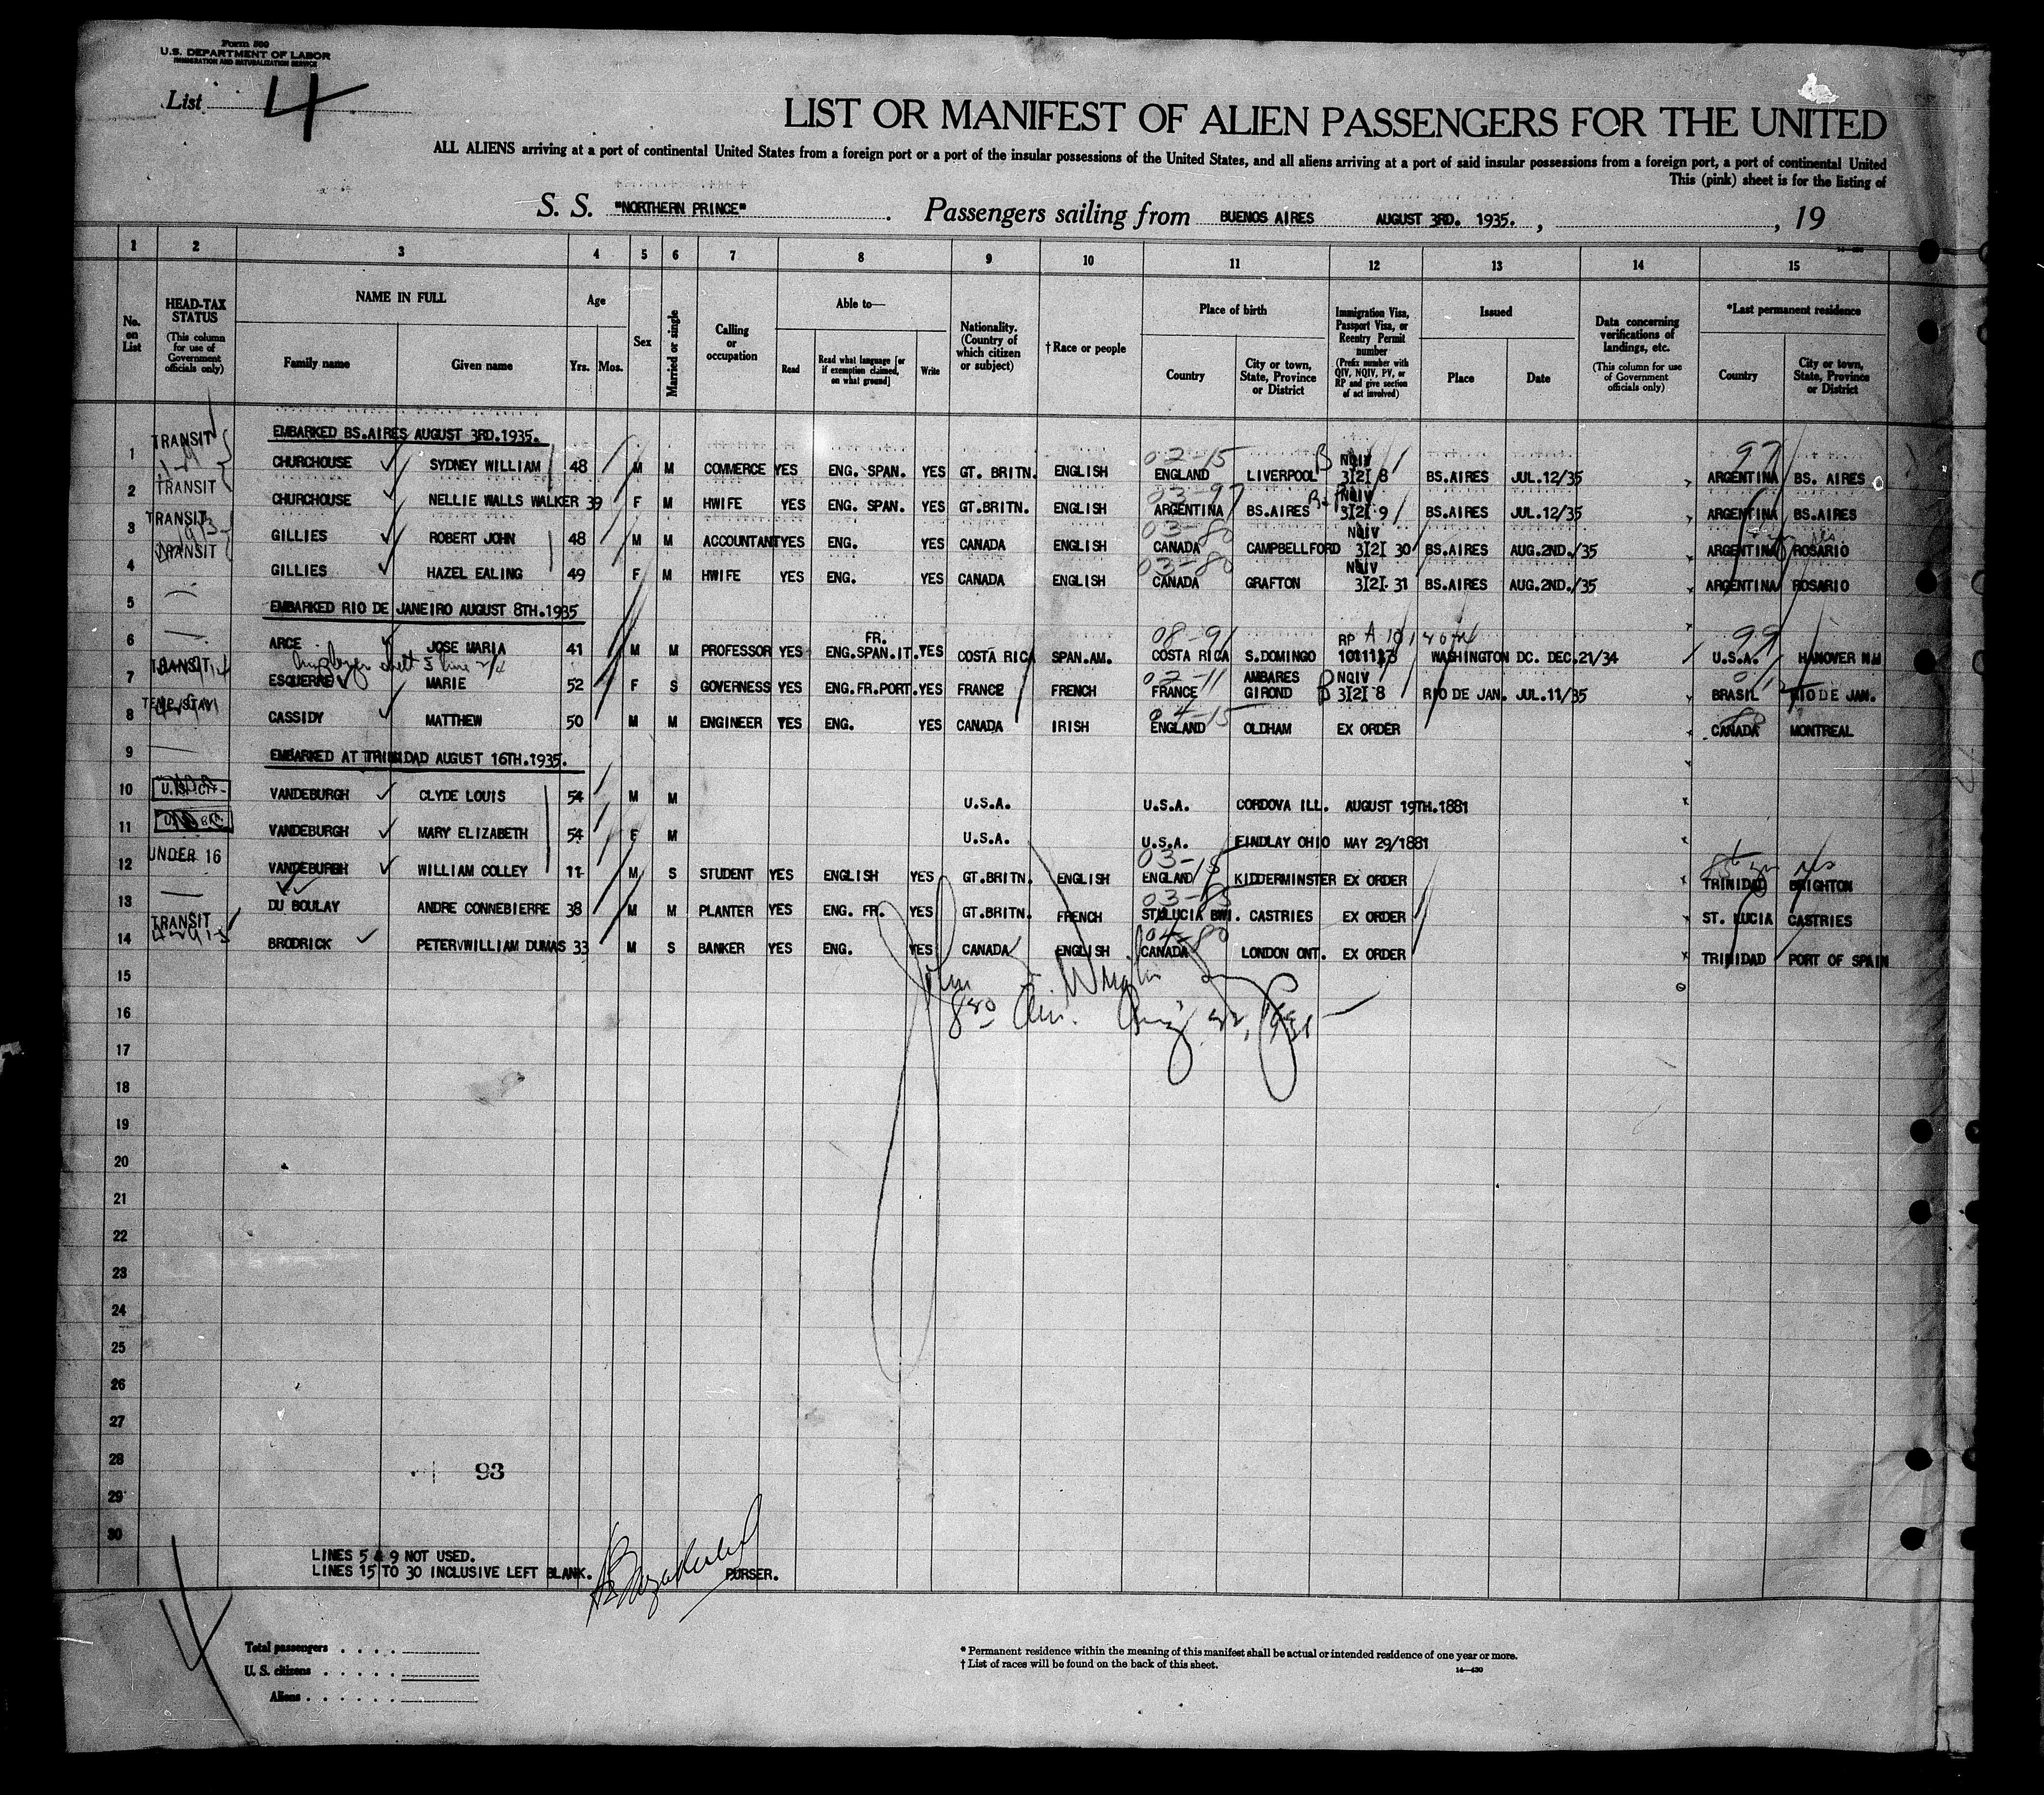 Form 500
U.S. DEPARTMENT OF LABOR
IMMIGRATION AND NATURALIZATION SERVICE
List 4
LIST OR MANIFEST OF ALIEN PASSENGERS FOR THE UNITED
ALL ALIENS arriving at a port of continental United States from a foreign port or a port of the insular possessions of the United States, and all aliens arriving at a port of said insular possessions from a foreign port, a port of continental United
This (pink) sheet is for the listing of
S. S. "NORTHERN PRINCE" . Passengers sailing from BUENOS AIRES AUGUST 3RD. 1935. , , 19
1 2 3 4 5 6 7 8 9 10 11 12 13 14 15
No. on List
HEAD-TAX STATUS (This column for use of Government officials only)
NAME IN FULL
Family name Given name
Age
Yrs. Mos.
Sex
Married or single
Calling or occupation
Able to—
Read Read what language [or if exemption claimed, on what ground] Write
Nationality. (Country of which citizen or subject)
†Race or people
Place of birth
Country City or town, State, Province or District
Immigration Visa, Passport Visa, or Reentry Permit number (Prefix number with QIV, NQIV, PV, or RP and give section of act involved)
Issued
Place Date
Data concerning verifications of landings, etc. (This column for use of Government officials only)
*Last permanent residence
Country City or town, State, Province or District
EMBARKED BS.AIRES AUGUST 3RD.1935.
1 TRANSIT CHURCHOUSE SYDNEY WILLIAM 48 M M COMMERCE YES ENG. SPAN. YES GT. BRITN. ENGLISH 02-15 ENGLAND LIVERPOOL B NQIV 3121 8 BS.AIRES JUL.12/35 97 ARGENTINA BS. AIRES
2 TRANSIT CHURCHOUSE NELLIE WALLS WALKER 39 F M HWIFE YES ENG. SPAN. YES GT.BRITN. ENGLISH 03-97 ARGENTINA BS.AIRES NQIV 3121 9 BS.AIRES JUL.12/35 ARGENTINA BS.AIRES
3 TRANSIT GILLIES ROBERT JOHN 48 M M ACCOUNTANT YES ENG. YES CANADA ENGLISH 03-80 CANADA CAMPBELLFORD NQIV 3121 30 BS.AIRES AUG.2ND./35 ARGENTINA ROSARIO
4 TRANSIT GILLIES HAZEL EALING 49 F M HWIFE YES ENG. YES CANADA ENGLISH 03-80 CANADA GRAFTON NQIV 3121 31 BS.AIRES AUG.2ND./35 ARGENTINA ROSARIO
5 EMBARKED RIO DE JANEIRO AUGUST 8TH.1935
6 ARCE JOSE MARIA 41 M M PROFESSOR YES FR. ENG.SPAN.IT. YES COSTA RICA SPAN.AM. 08-91 COSTA RICA S.DOMINGO RP WASHINGTON DC. DEC.21/34 99 U.S.A. HANOVER NH
7 TRANSIT ESQUERRE MARIE 52 F S GOVERNESS YES ENG.FR.PORT. YES FRANCE FRENCH 02-11 FRANCE AMBARES GIROND B NQIV 3121 8 RIO DE JAN. JUL.11/35 BRASIL RIO DE JAN.
8 TEMP.STAY CASSIDY MATTHEW 50 M M ENGINEER YES ENG. YES CANADA IRISH 04-15 ENGLAND OLDHAM EX ORDER CANADA MONTREAL
9 EMBARKED AT TRINIDAD AUGUST 16TH.1935.
10 U.S. CIT. VANDEBURGH CLYDE LOUIS 54 M M U.S.A. U.S.A. CORDOVA ILL. AUGUST 19TH.1881
11 VANDEBURGH MARY ELIZABETH 54 F M U.S.A. U.S.A. FINDLAY OHIO MAY 29/1881
12 UNDER 16 VANDEBURGH WILLIAM COLLEY 11 M S STUDENT YES ENGLISH YES GT.BRITN. ENGLISH 03-15 ENGLAND KIDDERMINSTER EX ORDER TRINIDAD BRIGHTON
13 DU BOULAY ANDRE CONNEBIERRE 38 M M PLANTER YES ENG. FR. YES GT.BRITN. FRENCH 03-85 ST.LUCIA BWI. CASTRIES EX ORDER ST. LUCIA CASTRIES
14 TRANSIT BRODRICK PETER WILLIAM DUMAS 33 M S BANKER YES ENG. YES CANADA ENGLISH 04-80 CANADA LONDON ONT. EX ORDER TRINIDAD PORT OF SPAIN
15
16
17
18
19
20
21
22
23
24
25
26
27
28
93
29
30
LINES 5 & 9 NOT USED.
LINES 15 TO 30 INCLUSIVE LEFT BLANK.
PURSER.
Total passengers
U. S. citizens
Aliens
* Permanent residence within the meaning of this manifest shall be actual or intended residence of one year or more.
† List of races will be found on the back of this sheet.
14—430